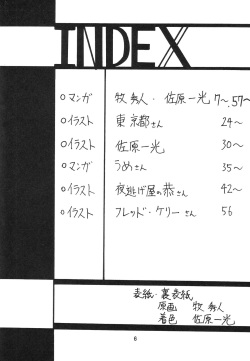 INDEX
○マンガ 牧秀人・佐原一光 7〜,57〜
○イラスト 東京都さん 24〜
○イラスト 佐原一光 30〜
○マンガ うめさん 35〜
○イラスト 夜逃げ屋の恭さん 42〜
○イラスト フレッド・ケリーさん 56
表紙・裏表紙
原画 牧秀人
着色 佐原一光
6